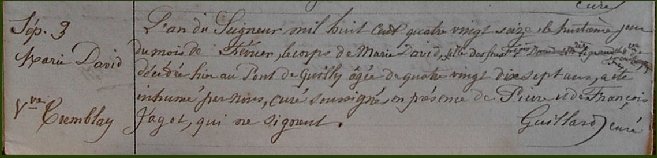 Sép. 3
Marie David
Vve
Tremblay
L'an du Seigneur mil huit cent quatre vingt seize le huitième jour
du mois de février, le corps de Marie David, fille des feus
décédée hier au Pont de Guilly âgée de quatre vingt dix sept ans, a été
inhumé par nous, curé soussigné, en présence de Pierre et de François
Jaget, qui ne signent.
Guittard, curé